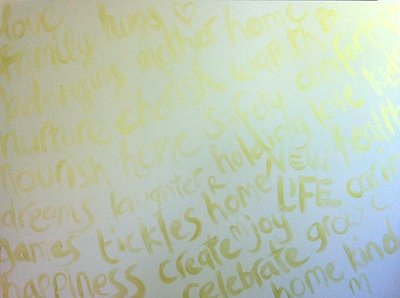 love hugs
family mother home
belonging cherish warmth
nurture home safety comfort
nourish laughter holding love
dreams home NEW health
games tickles LIFE
happiness create enjoy grow
celebrate home kind